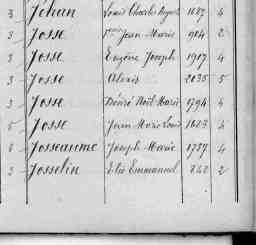 3 Jéhan Louis Charles August 1687 4
3 Josse Jean Marie 904 2
3 Josse Eugène Joseph 1907 4
3 Josse Alexis 2035 5
3 Josse Désiré Noël Marie 1794 4
5 Josse Jean Marie Louis 1623 4
4 Josseaume Joseph Marie 1757 4
3 Josselin Elie Emmanuel 242 2